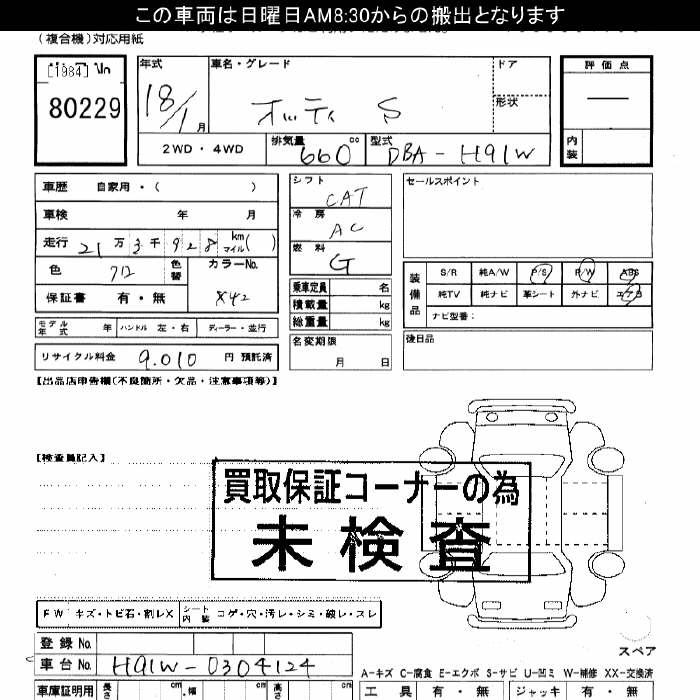 この車両は日曜日AM8:30からの搬出となります
(複合機)対応用紙
[1984]
80229
年式 車名・グレード ドア 評価点
18/1月 オッティ S 形状 —
2WD・4WD 排気量 660 cc 型式 DBA-H91W 内装
車歴 自家用・( )
車検 年 月
走行 21万3千928 km マイル( )
色 色替 カラーNo.
保証書 有・無 X42
シフト CAT
冷房 AC
燃料 G
乗車定員 名
積載量 kg
総重量 kg
セールスポイント
装備品 S/R 純A/W P/S P/W ABS
純TV 純ナビ 革シート 外ナビ エアB
ナビ型番:
モデル年式 年 ハンドル 左・右 ディーラー・並行
名変期限 月 日
後日品
リサイクル料金 9,010 円 預託済
【出品店申告欄(不良箇所・欠品・注意事項等)】
【検査員記入】
買取保証コーナーの為
未検査
FW キズ・トビ石・割レX シート内装 コゲ・穴・汚レ・シミ・破レ・スレ
登録 No.
車台 No. H91W-0304124
スペア
A-キズ C-腐食 E-エクボ S-サビ U-凹ミ W-補修 XX-交換済
車庫証明用 長さ cm 幅 cm 高さ cm
工具 有・無 ジャッキ 有・無